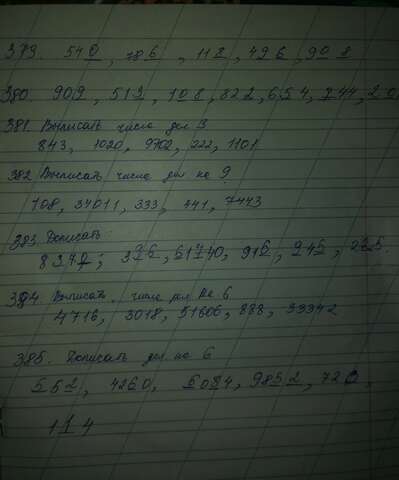 379. 540, 786, 112, 496, 908
380. 909, 513, 108, 822, 654, 744, 20
381. Выписать числа дел 3
843, 1020, 9702, 222, 1101
382 Выписать числа дел на 9
108, 34011, 333, 441, 7443
383 Дописать:
8370; 396, 61740, 916, 945,
384. Выписать числа дел на 6
4716, 3018, 51606, 888, 33342
385. Дописать дел на 6
552, 4260, 6084, 9852, 720,
114